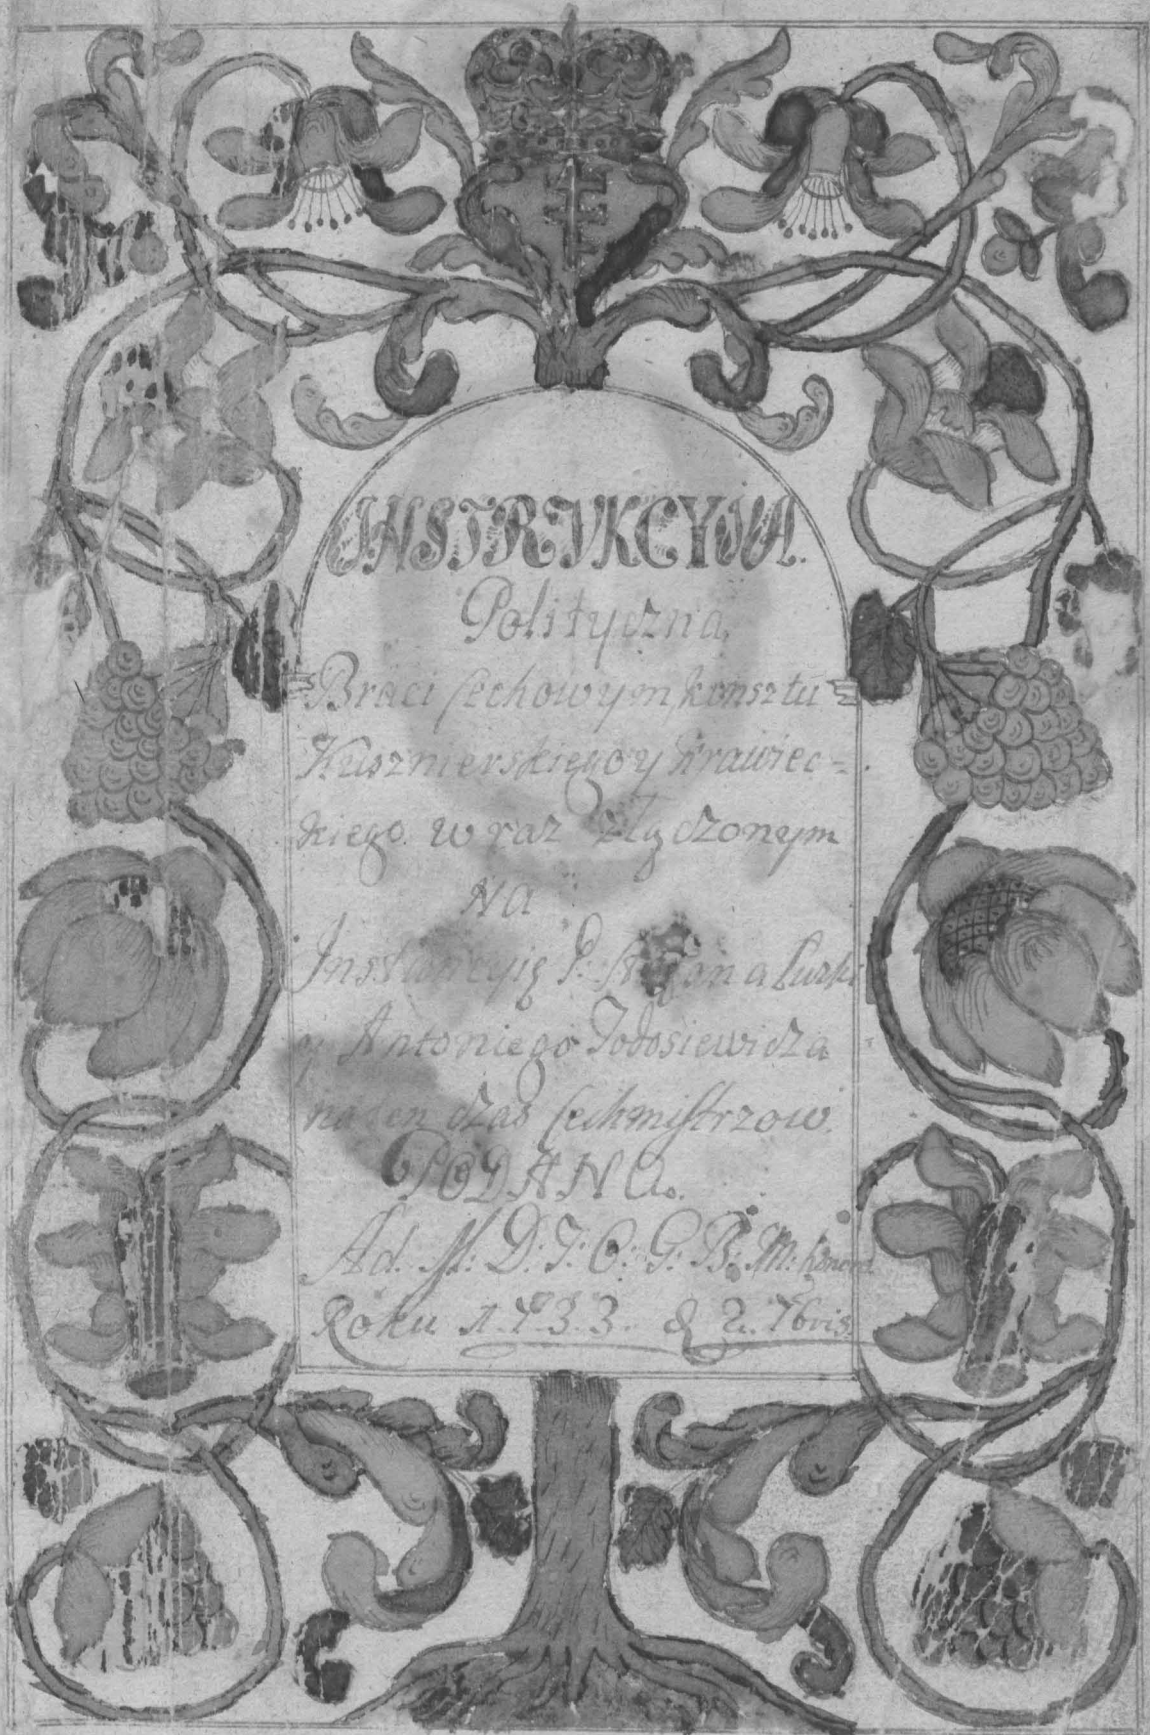 INSTRVKCYIA.
Polityczna,
Braci Cechowym, konsztu
Kusznierskiego y Krawiec=
kiego. wraz złączonym
NA
Instancyią P: a
y Antoniego Todosiewicza
na ten czas Cechmistrzow.
PODANA.
Ad. M: D: I: C: G: B: M:
Roku 1.7.3.3. d 2. 7bris.